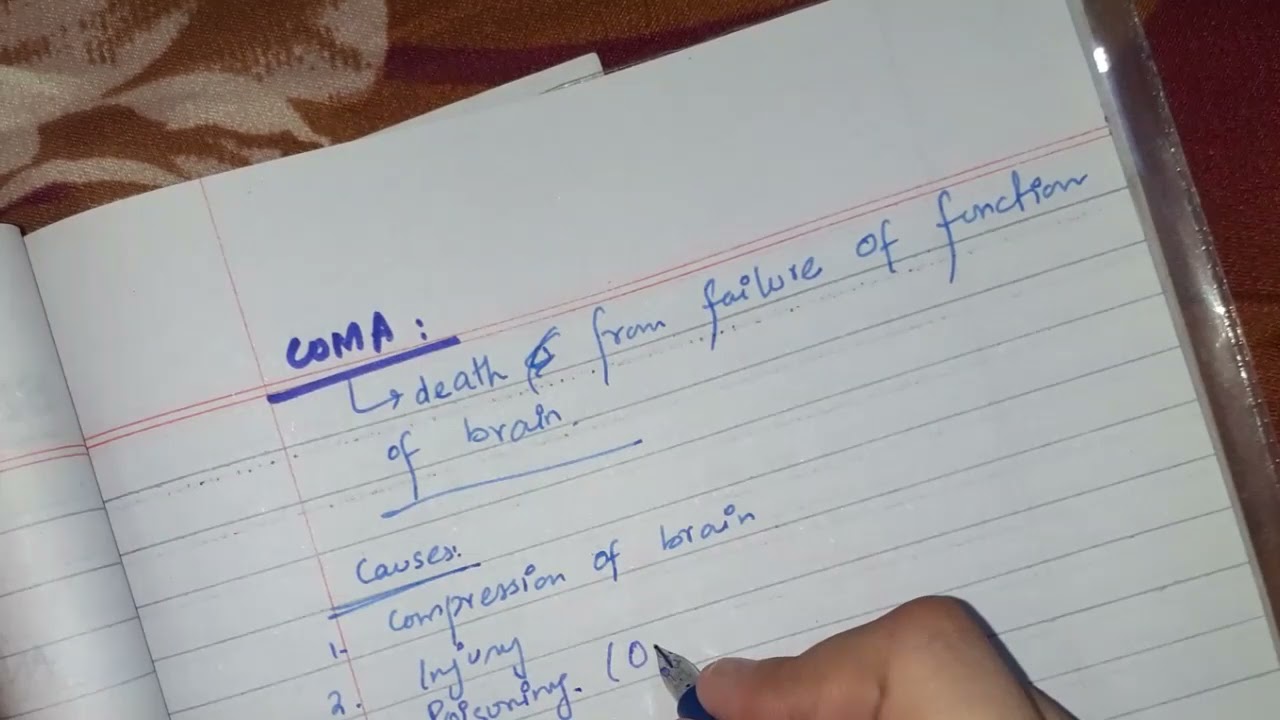 COMA :
↳ death from failure of function
of brain.
Causes:
1. Compression of brain
2. Injury
Poisoning. (O